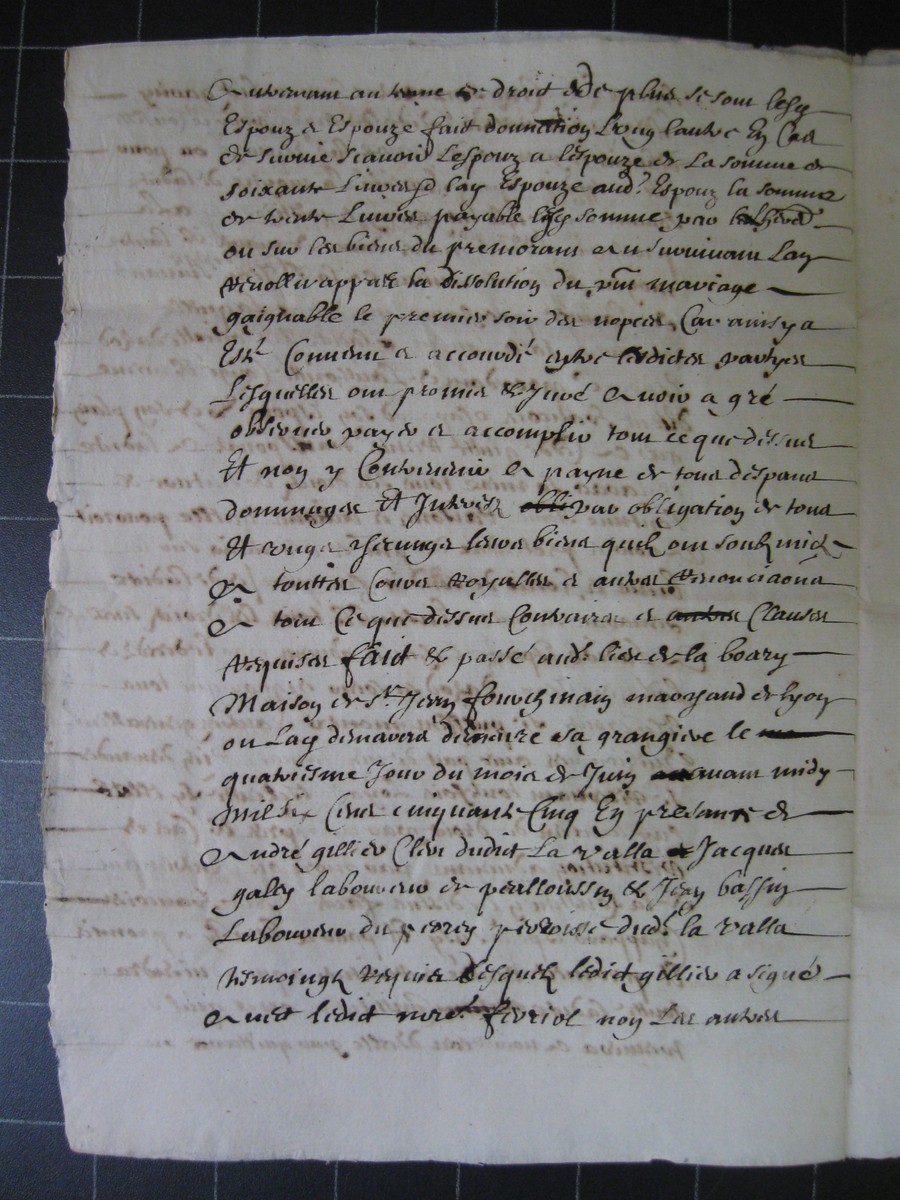 Advenant au terme de droit Et de plus se sont lesd
Espoux & Espouze fait donnation L'ung lautre En Cas
de survie scavoir Lespoux a lespouze de La somme de
soixante Livres & lad Espouze aud.t Espoux la somme
de trente Livres payable lesd somme par
ou sur les biens du premorant au survivant Lad
appres la dissolution du pnt mariage
gaignable le premier soir des nopces Car ainsy a
Esté Convenu & accordé entre lesdictes partyes
Lesquelles ont promis & Juré Avoir a gré
observer payer & accomplir tout ce que dessus
Et non y Contrevenir A payne de tous despans
dommages Et Interestz par obligation de tous
Et leurs biens quilz ont soubzmis
A touttes Cours Royalles & autres Renonciaons
A tout Ce que dessus Contraires & Clauses
Requises fait & passé aud. lieu de la boary
Maison de Sr Jean fourchinain marchand de lyon
ou Lad sa grangiere le
quatriesme Jour du mois de Juin avant midy
Mil Six Cens cinquante Cinq En presance de
André gillier Clerc dudict La valla & Jacques
galley laboureur de & Jean bassin
Laboureur du parroisse dud.t la valla
tesmoingtz requis desquelz ledict gillier a signé
Avec ledict not.re fevriol non Les autres